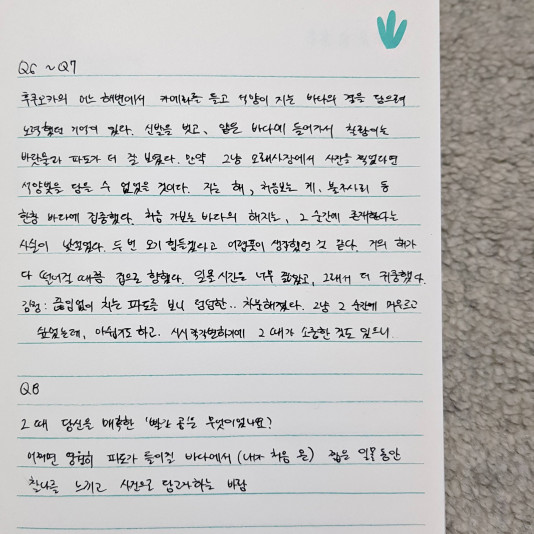 Q6 ~ Q7
후쿠오카의 어느 해변에서 카메라를 들고 석양이 지는 바다의 결을 담으려
노력했던 기억이 있다. 신발을 벗고, 얕은 바다에 들어가서 찰랑이는
바닷물과 파도가 더 잘 보였다. 만약 그냥 모래사장에서 사진을 찍었다면
석양빛을 담을 수 없었을 것이다. 지는 해, 처음보는 게, 불가사리 등
한참 바다에 집중했다. 처음 가보는 바다의 해지는, 그 순간에 존재한다는
사실이 낯설었다. 두 번 오기 힘들겠다고 어렴풋이 생각했던 것 같다. 거의 해가
다 떨어질 때쯤 집으로 향했다. 일몰 시간은 너무 짧았고, 그래서 더 귀중했다.
감정: 끊임없이 치는 파도를 보니 덤덤한.. 차분해졌다. 그냥 그 순간에 머무르고
싶었는데, 아쉽기도 하고. 시시각각변하기에 그 때가 소중한 것도 있으니.
Q8
그 때 당신을 매혹한 '빨간 공'은 무엇이었나요?
어쩌면 당연히 파도가 들이칠 바다에서 (내가 처음 온) 짧은 일몰 동안
찰나를 느끼고 사진으로 담고자하는 바람